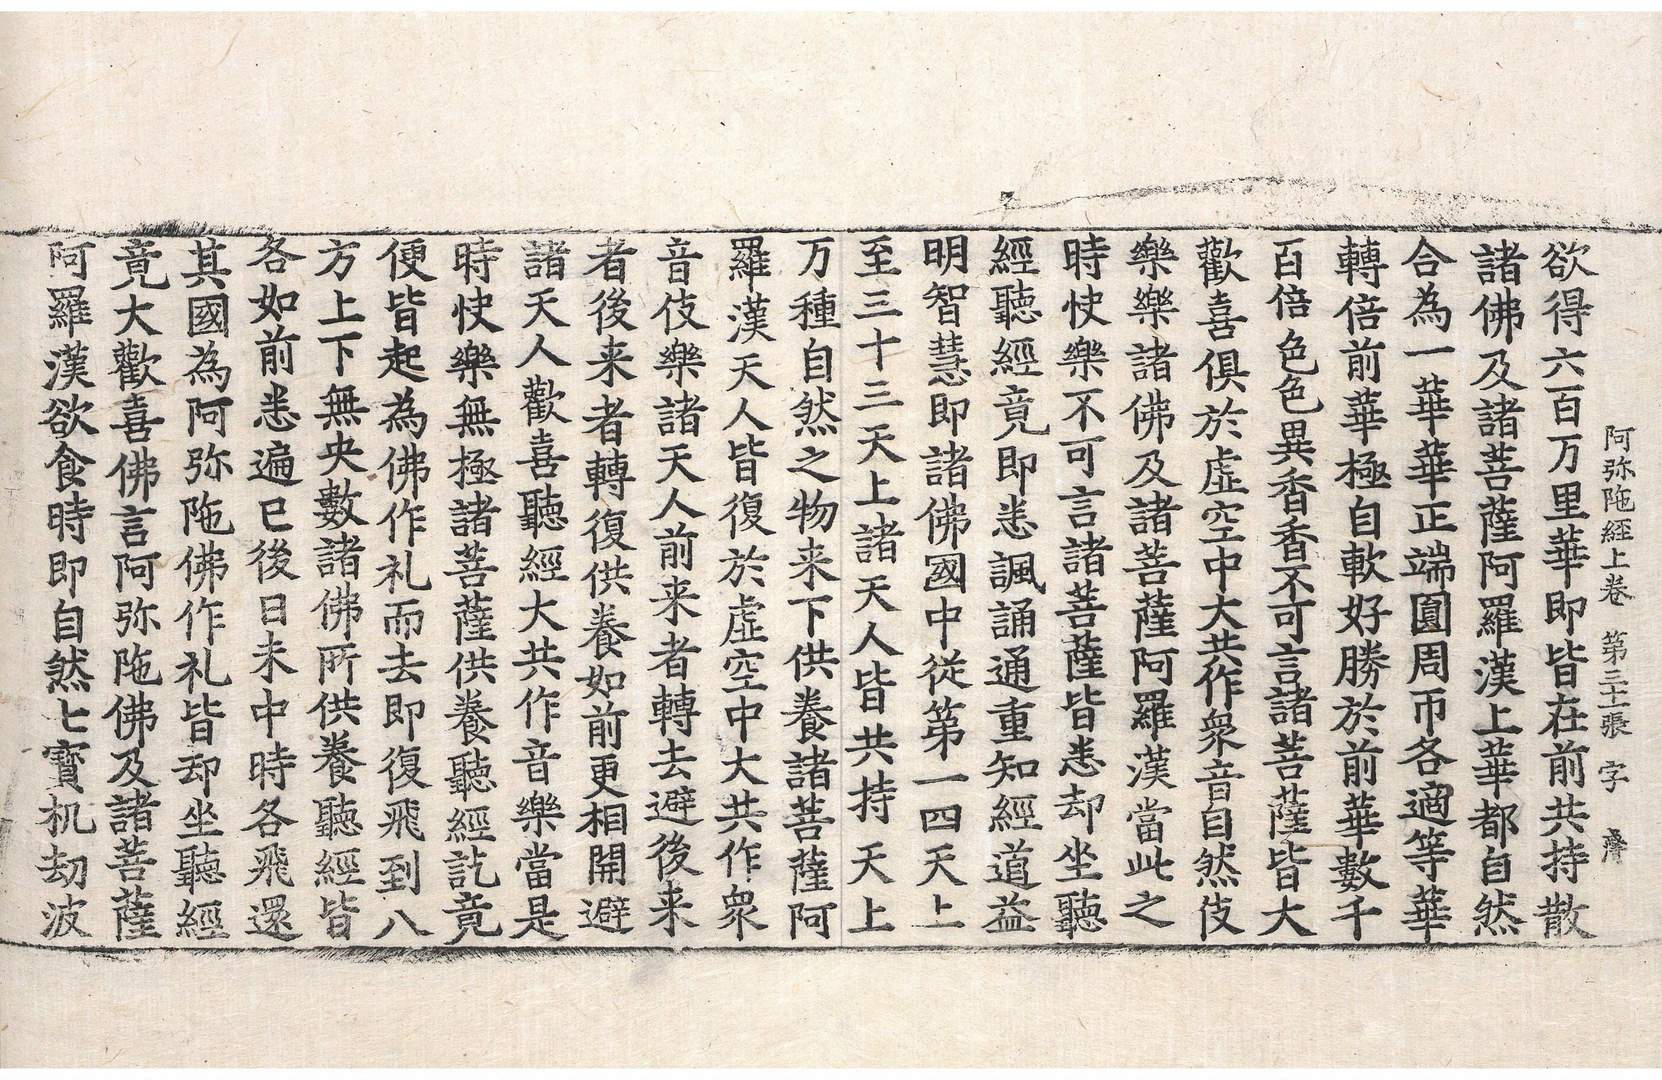 阿弥陁經上卷 第三十二張 字 膺
欲得六百万里華即皆在前共持散
諸佛及諸菩薩阿羅漢上華都自然
合為一華華正端圓周帀各適等華
轉倍前華極自軟好勝於前華數千
百倍色色異香香不可言諸菩薩皆大
歡喜俱於虛空中大共作衆音自然伎
樂樂諸佛及諸菩薩阿羅漢當此之
時快樂不可言諸菩薩皆悉却坐聽
經聽經竟即悉諷誦通重知經道益
明智慧即諸佛國中從第一四天上
至三十三天上諸天人皆共持天上
万種自然之物来下供養諸菩薩阿
羅漢天人皆復於虛空中大共作衆
音伎樂諸天人前来者轉去避後来
者後来者轉復供養如前更相開避
諸天人歡喜聽經大共作音樂當是
時快樂無極諸菩薩供養聽經訖竟
便皆起為佛作礼而去即復飛到八
方上下無央數諸佛所供養聽經皆
各如前悉遍已後日未中時各飛還
其國為阿弥陁佛作礼皆却坐聽經
竟大歡喜佛言阿弥陁佛及諸菩薩
阿羅漢欲食時即自然七寶机劫波